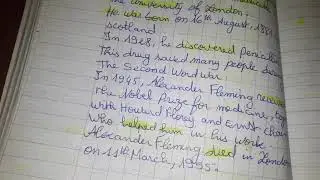 the university of London.
He was born on 16th August, 1881
scotland
In 1928, he discovered Penicillin
This drug saved many people during
The Second Word war.
In 1945, Alexander Fleming received
the Nobel Prize for medicine,
with Howard Florey and Ernst Chain
who helped him in his work.
Alexander Fleming died in London
on 11th March, 1955.